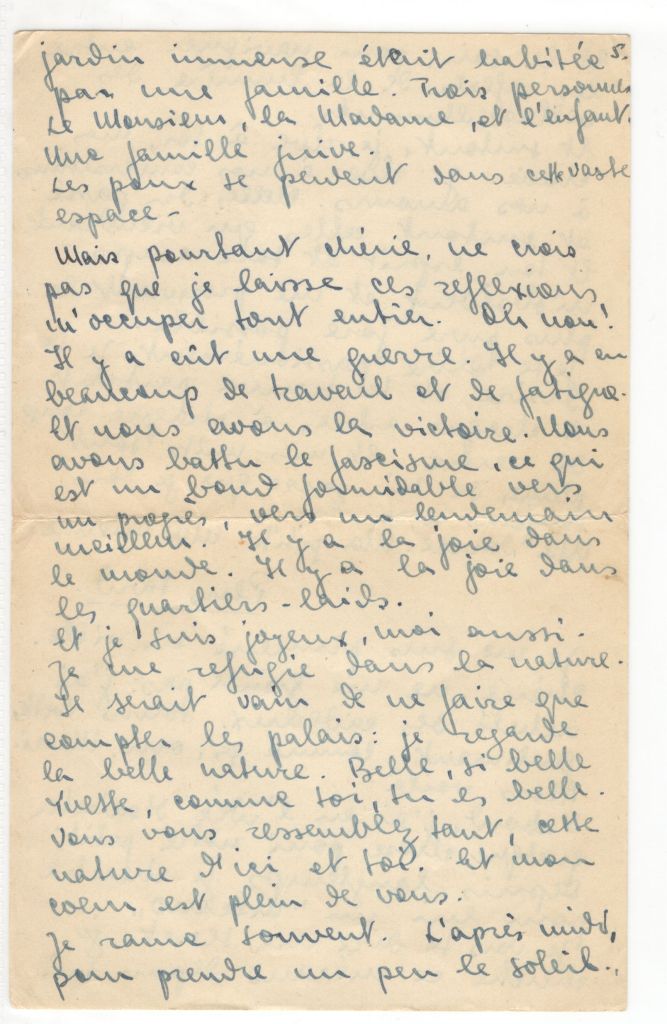 jardin immense était habitée 5.
par une famille. Trois personnes
Le Monsieur, la Madame, et l'enfant.
Une famille juive.
Les poux se perdent dans cette vaste
espace -
Mais pourtant chérie, ne crois
pas que je laisse ces reflexions
m'occuper tout entier. Oh non!
Il y a eût une guerre. Il y a eu
beaucoup de travail et de fatigue.
Et nous avons la victoire. Nous
avons battu le fascisme, ce qui
est un bond formidable vers
un progrès, vers un lendemain
meilleur. Il y a la joie dans
le monde. Il y a la joie dans
les quartiers-laids.
Et je suis joyeux, moi aussi.
Je me refugie dans la nature.
Il serait vain de ne faire que
compter les palais: je regarde
la belle nature. Belle, si belle
Yvette, comme toi, tu es belle.
Vous vous ressemblez tant, cette
nature d'ici et toi. Et mon
coeur est plein de vous.
Je rame souvent. L'après midi,
pour prendre un peu le soleil..